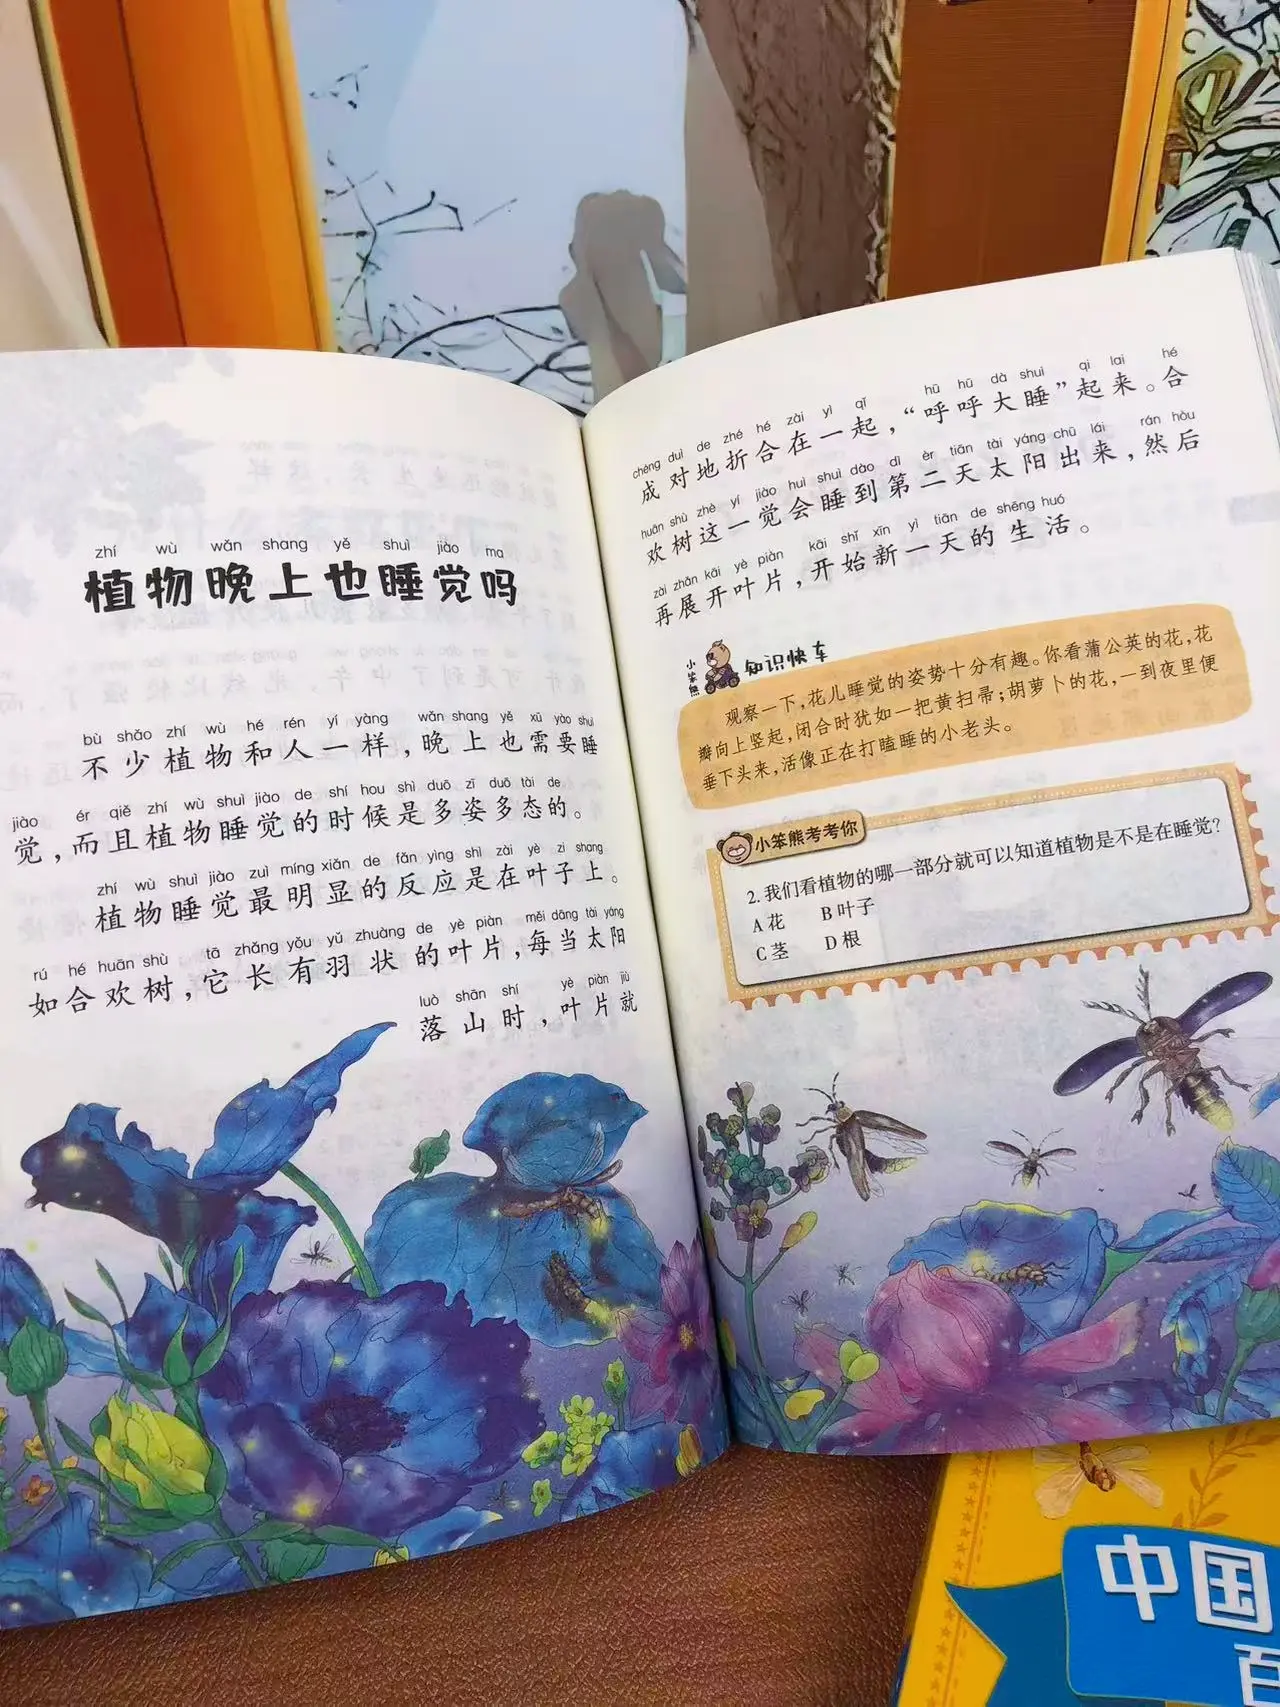 zhí wù wǎn shang yě shuì jiào ma
植物晚上也睡觉吗
bù shǎo zhí wù hé rén yí yàng wǎn shang yě xū yào shuì
不少植物和人一样，晚上也需要睡
jiào ér qiě zhí wù shuì jiào de shí hou shì duō zī duō tài de
觉，而且植物睡觉的时候是多姿多态的。
zhí wù shuì jiào zuì míng xiǎn de fǎn yìng shì zài yè zi shang
植物睡觉最明显的反应是在叶子上。
rú hé huān shù tā zhǎng yǒu yǔ zhuàng de yè piàn měi dāng tài yáng
如合欢树，它长有羽状的叶片，每当太阳
luò shān shí yè piàn jiù
落山时，叶片就
chéng duì de zhé hé zài yì qǐ hū hū dà shuì qi lai hé
成对地折合在一起，“呼呼大睡”起来。合
huān shù zhè yí jiào huì shuì dào dì èr tiān tài yáng chū lái rán hòu
欢树这一觉会睡到第二天太阳出来，然后
zài zhǎn kāi yè piàn kāi shǐ xīn yì tiān de shēng huó
再展开叶片，开始新一天的生活。
小笨熊 知识快车
观察一下，花儿睡觉的姿势十分有趣。你看蒲公英的花，花
瓣向上竖起，闭合时犹如一把黄扫帚；胡萝卜的花，一到夜里便
垂下头来，活像正在打瞌睡的小老头。
小笨熊考考你
2.我们看植物的哪一部分就可以知道植物是不是在睡觉？
A 花 B 叶子
C 茎 D 根
中国
百